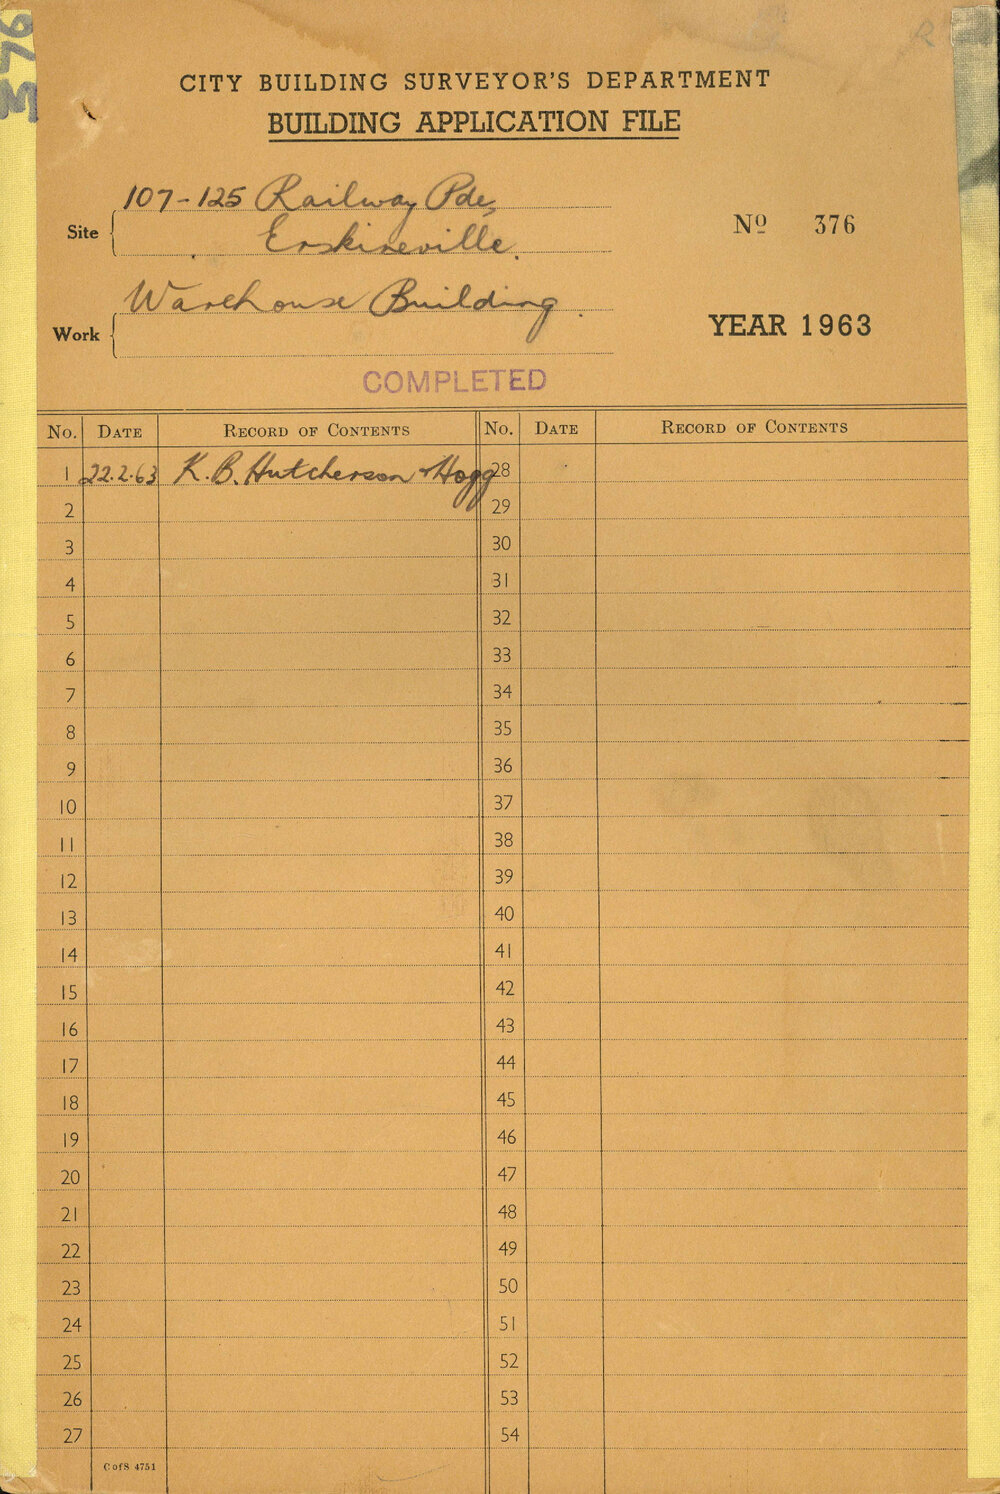 376
R
CITY BUILDING SURVEYOR'S DEPARTMENT
BUILDING APPLICATION FILE
Site
107-125 Railway Pde,
Erskineville.
Nº 376
Work
Warehouse Building.
YEAR 1963
COMPLETED
No. DATE RECORD OF CONTENTS No. DATE RECORD OF CONTENTS
1 22.2.63 K. B. Hutcherson + Hogg 28
2 29
3 30
4 31
5 32
6 33
7 34
8 35
9 36
10 37
11 38
12 39
13 40
14 41
15 42
16 43
17 44
18 45
19 46
20 47
21 48
22 49
23 50
24 51
25 52
26 53
27 54
C of S 4751